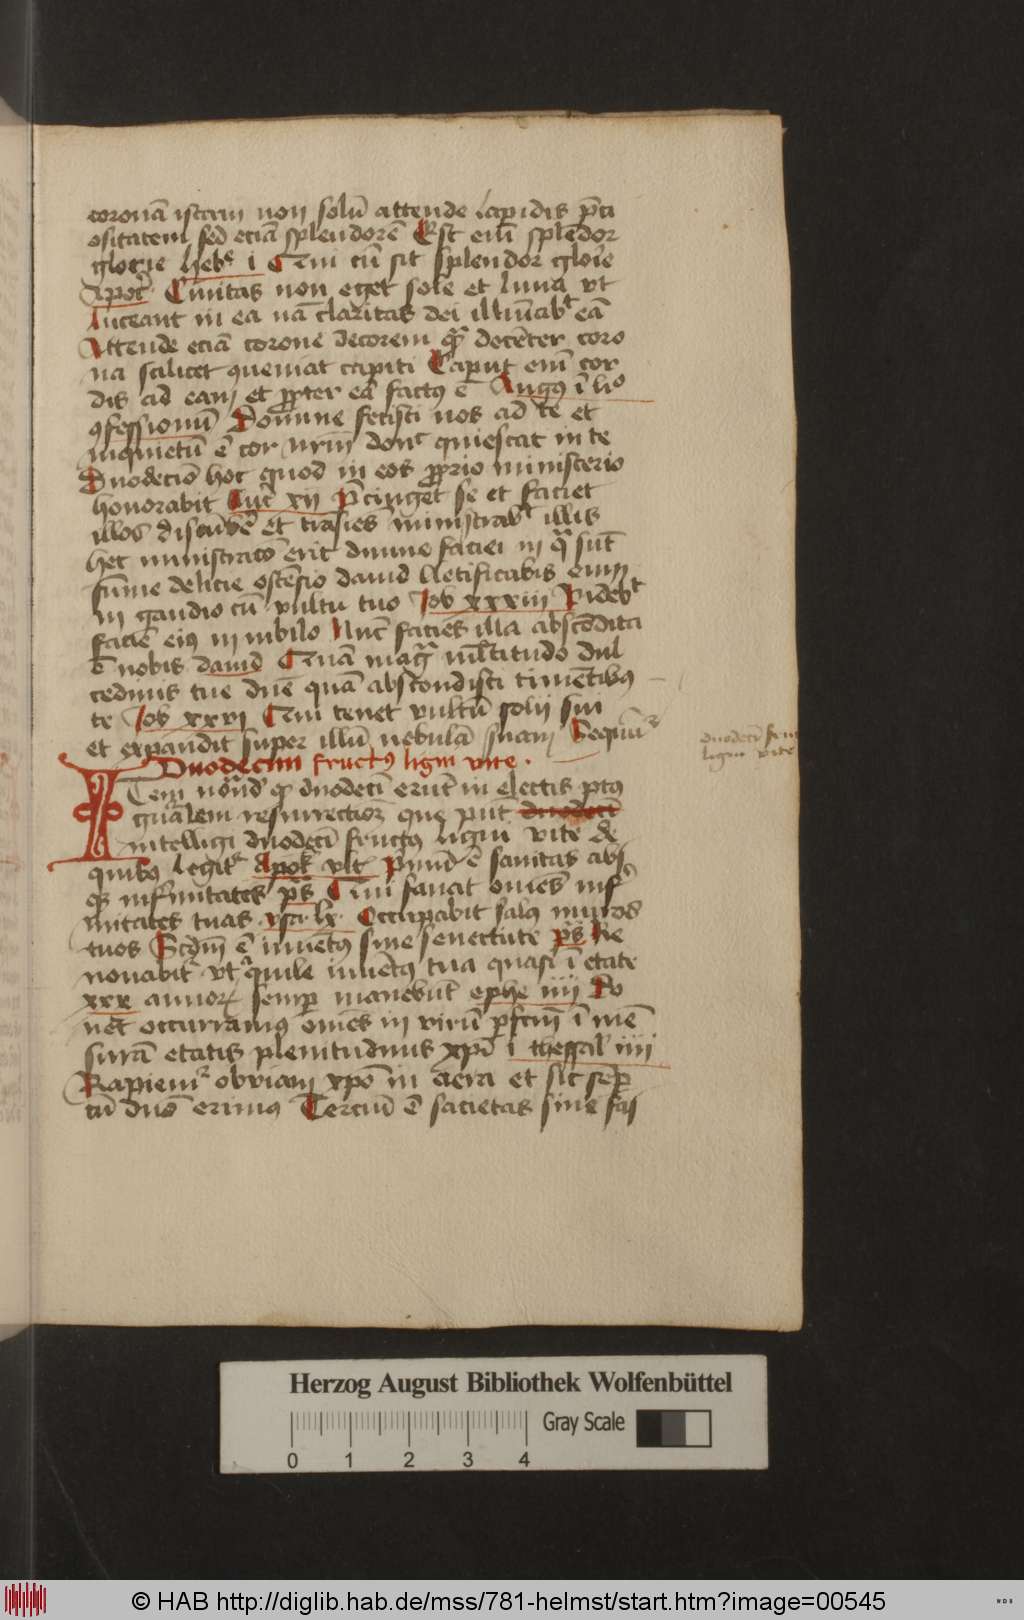 coronā istam non solū attende lapidis p̄ci
ositatem sed eciā splendorē Est enī splendor
glorie heb̄ i Cui cū sit splendor gl̄oie
apoc̄ Ciuitas non eget sole et luna vt
luceant in ea nā claritas dei illuīabt eā
Attende eciā corone decorem decēter coro
na scilicet ꝯueniat capiti Caput enī cor
dis ad eam et ꝓpter eā factꝰ ē Augꝰ ī lio
ꝯfessionū Domine fecisti nos ad te et
inquietū ē cor nr̄m donc quiescat in te
Duodecīo hoc quod in eos ꝓprio ministerio
honorabit luc̄ xii P̄cinget se et faciet
illos discūbē et trāsies ministrabt illis
hec ministracō erit diuine faciei in qͣ sūt
sūme delicie ostēsio dauid letificabis eum
in gaudio cū vultu tuo Job xxxiii Videbt
faciē eiꝰ in iubilo Nūc facies illa abscōdita
ē nobis dauid Quā magͣ mltitudo dul
cedinis tue dn̄e quā abscondisti timētibꝰ
te Job xxvi Qui tenet vultū solii sui
et expandit super illū nebulā suam Sequūr
Duodecim fructꝰ ligni vite
duodecī fruc
ligni vite
Item duodecī erūt in electis
qualem resurrectioꝫ que pn̄t duodecī
intelligi duodecī fructꝰ ligni vite de
quibꝰ legitr Apok vlt P̄mꝰ ē sanitas abs
qꝫ infirmitates p̄s Qui sanat omēs infr
mitates tuas ysa lx Occupabit salꝰ muros
tuos Scd̄m ē iuuētꝰ sine senectute p̄s Re
nouabitr vt aquile iuuētꝰ tua quasi ī etate
xxx annoꝝ semꝑ manebūt ephe iiii Do
nec occurramꝰ omēs in virū ꝑfectū ī mē
surā etatis plenitudinis xp̄i i thessal iiii
Rapiemr obuiam xp̄o in aera et sic seꝑ
cū dn̄o erimꝰ Terciū ē sacietas sine fas
Herzog August Bibliothek Wolfenbüttel
Gray Scale
0 1 2 3 4
© HAB http://diglib.hab.de/mss/781-helmst/start.htm?image=00545